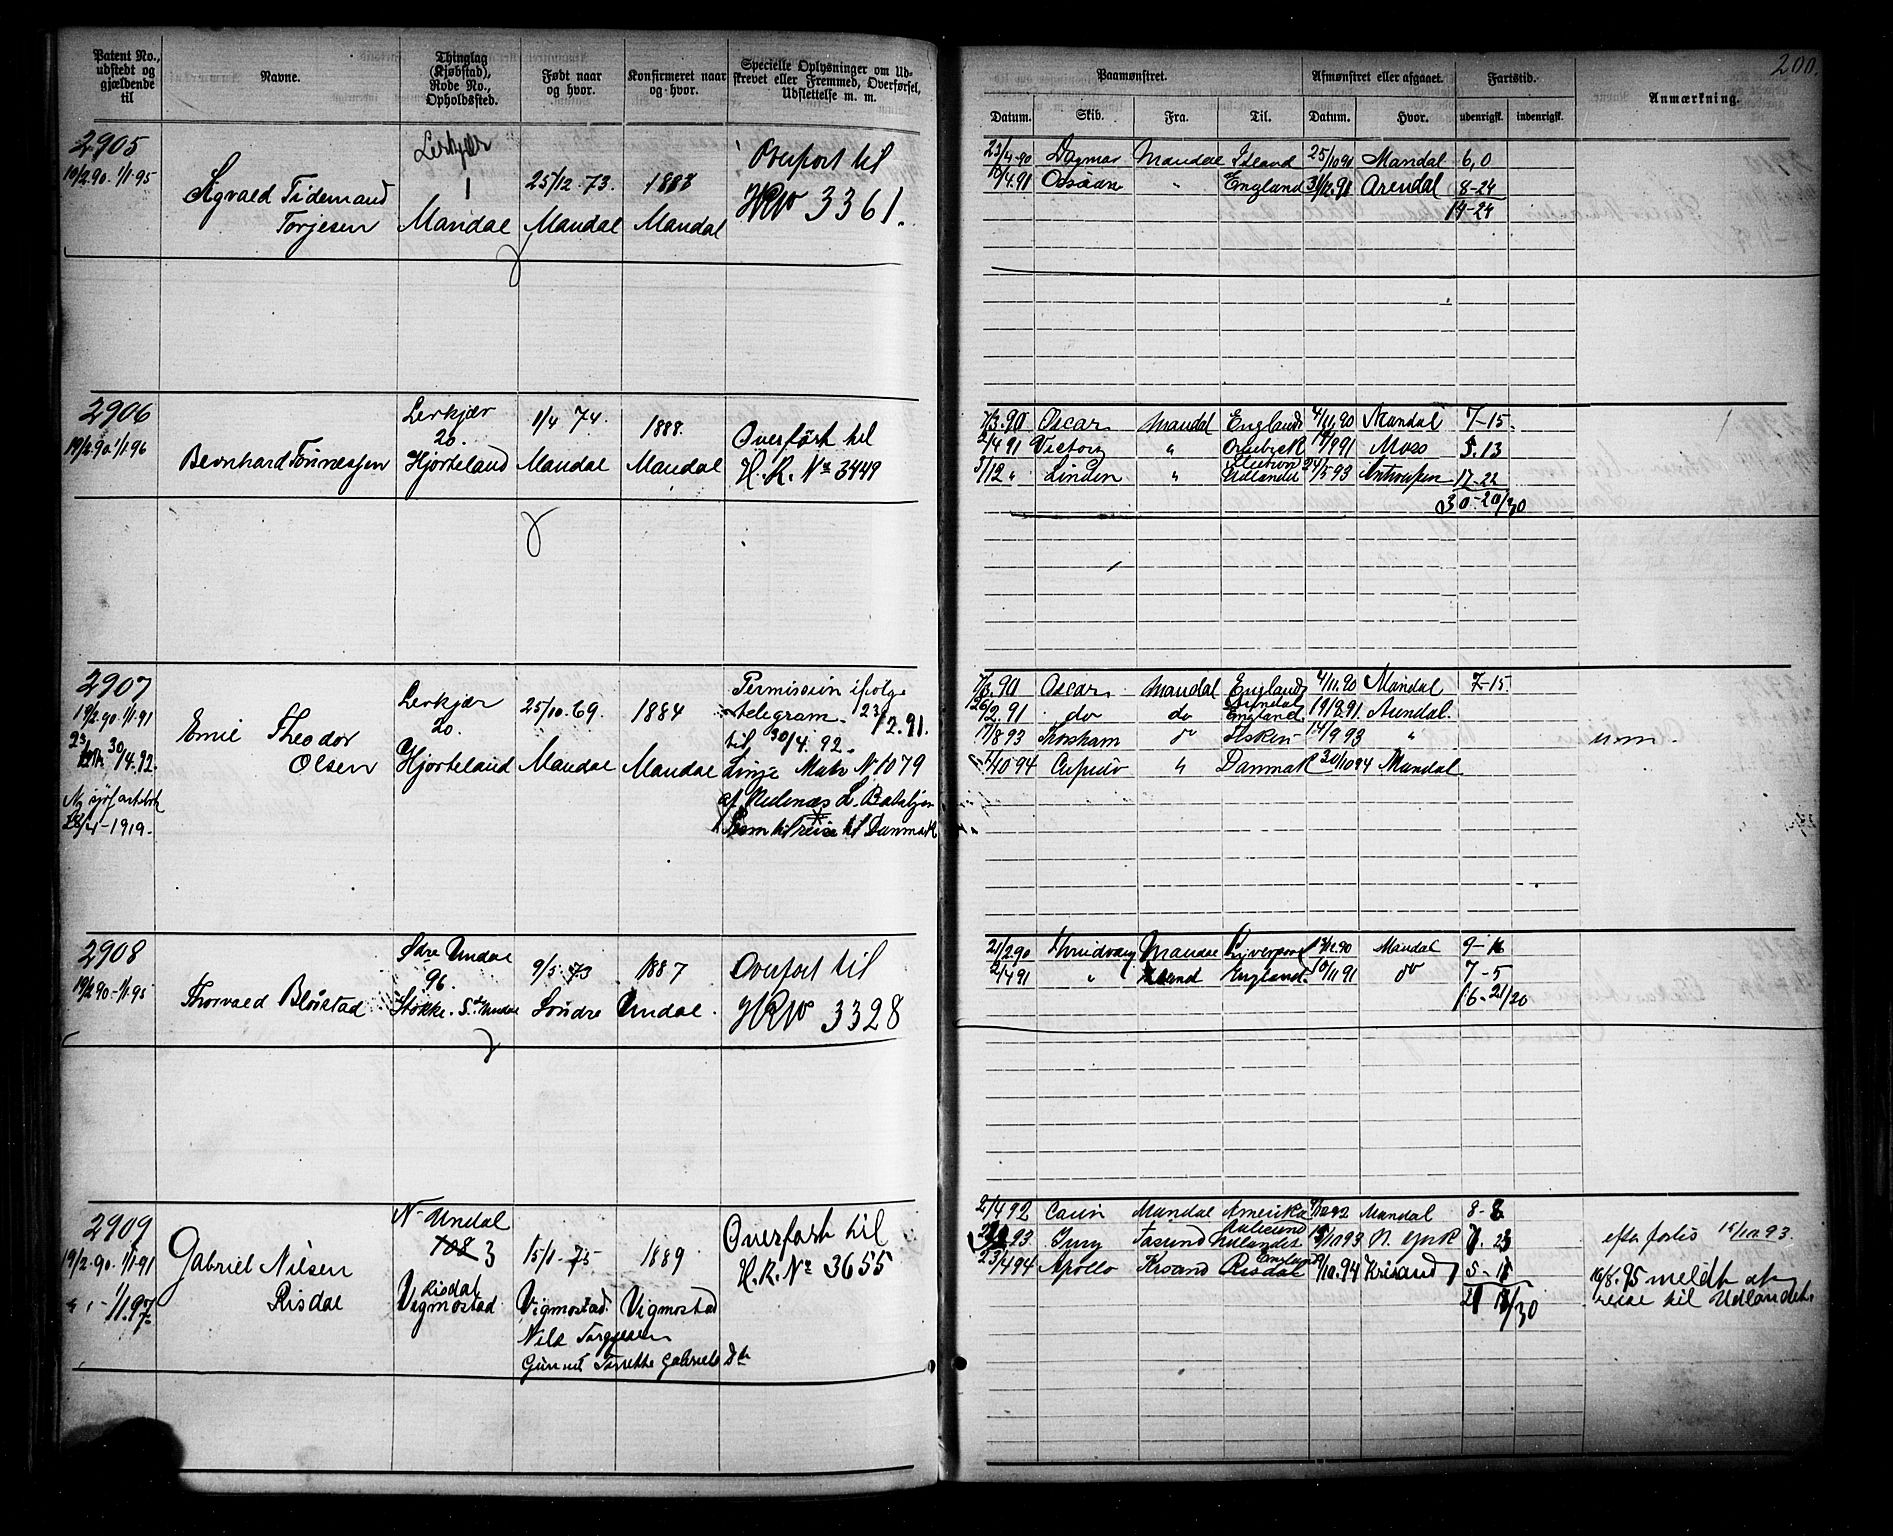 Patent No., udstedt og gjældende til
Navne.
Thinglag (Kjøbstad), Rode No., Opholdssted.
Født naar og hvor.
Konfirmeret naar og hvor.
Specielle Oplysninger om Udskrevet eller Fremmed, Overførsel, Udslettelse m. m.
Paamønstret.
Afmønstret eller afgaaet.
Fartstid.
Anmærkning.
200.
Datum.
Skib.
Fra.
Til.
Datum.
Hvor.
udenrigsk.
indenrigsk.
2905
19/2.90. 1/1.95
Sigvald Tidemand
Torjesen
Lerkjær
1
Mandal
25/12.73.
Mandal
1888
Mandal
Overført til
HRNo 3361.
23/4.90 Dagmar Mandal Island 25/10 90 Mandal 6,0
4.91 " England 31/12.91 Arendal 8-24
14-24
2906
19/2.90 1/1.96
Bernhard Tønnessen
Lerkjær
20.
Hjorteland
1/4 74.
Mandal
1888.
Mandal
Overført til
H. R. No 3449
7/3.90 Oscar Mandal England 4/11.90 Mandal 7-15.
2/4 91 Victory " 19/9 91 Moss 5.13
5/12 " Linden " Udlandet 24/5 93 Antwerpen 17-22
30-20/30
2907
19/2.90 1/1.91
30/4.92.
Ny sjøfartsbok
28/4-1919.
Emil Theodor
Olsen
Lerkjær
20.
Hjorteland
25/10.69.
Mandal
1884
Mandal
Permission ifølge
telegram 23/12.91.
til 30/4.92.
Linje Matr N 1079
af Nedenæs L. Bataljon
til reise til Danmark
7/3.90 Oscar Mandal England 4/11.90 Mandal 7-15
2.91 do do England 19/8.91. Arendal.
17/8 93 Horsham do Fisken 14/9 93 "
10 94 Cupido " Danmark 30/10 94 Mandal
2908
19/2 90-1/1.95
Thorvald Bløistad
Sdre Undal
96.
Stokke. S. Undal
9/5.73
Søndre
1887
Undal.
Overført til
HRNo 3328
21/2.90 Mandal Liverpool 90 Mandal 9-16
2/4 91 " England. 10/11 91 do 7-5
16-21/20
2909
19/2.90.1/1.91
" - 1/1.97
Gabriel Nilsen
Risdal
N. Undal
108 3
Risdal
Vigmostad
15/1.75
Vigmostad.
1889
Vigmostad
Nils Torgjesen
Gabriels Dtr
Overført til
H. R. No 3655
2/4 92 Mandal Amerika 92 Mandal 8-8
93 Udlandet 10 93 N. York 7. 23
23/4 94 Apollo Krsand Risdal 10.94 Krisand 5-11
21 12/30
efter forlis 15/10.93.
16/8.95 meldt at
reise til Udlandet.